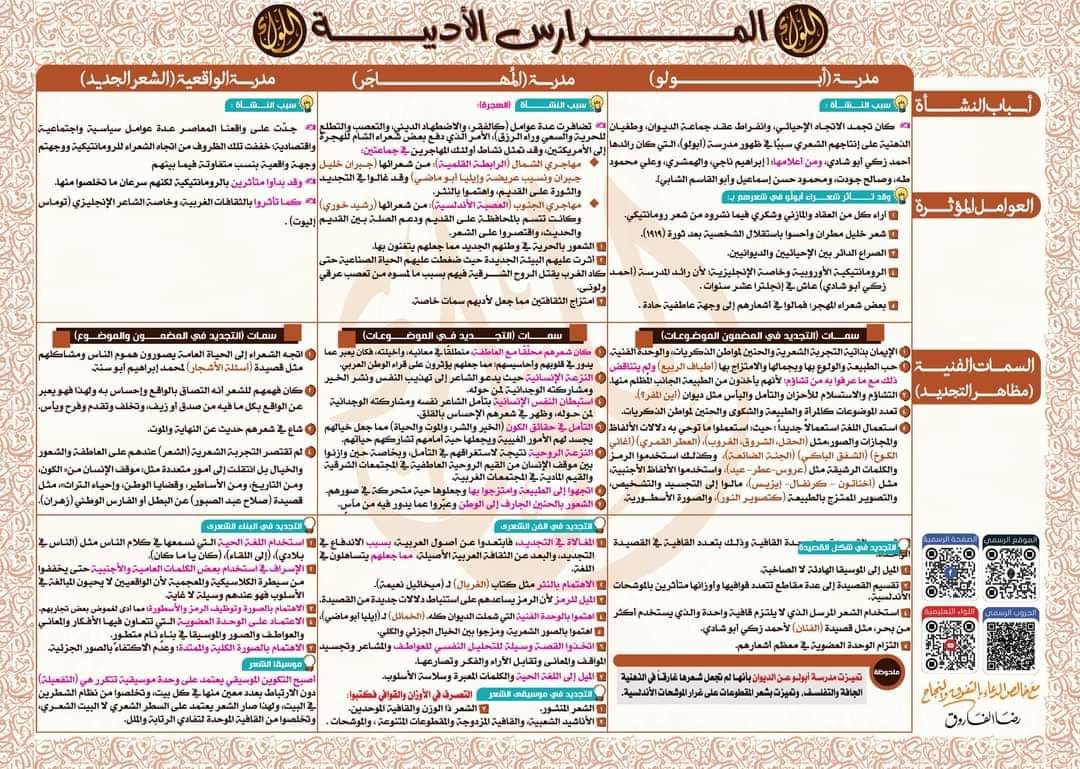 المـــدارس الأدبيـــة
اللواء
اللواء
مدرسة (أبـــولو)
مدرسة (المُـهـاجَـر)
مدرسة الواقعية (الشعر الجديد)
أسباب النشـأة
العوامل المؤثـرة
السمات الفنية
(مظاهر التجديد)
سبب النـشـأة :
كان تجمد الاتجاه الإحيائي، وانفراط عقد جماعة الديوان، وطغيان
الذهنية على إنتاجهم الشعري سببًا في ظهور مدرسة (أبولو)، التي كان رائدها
أحمد زكي أبو شادي، ومن أعلامها: إبراهيم ناجي، والهمشري، وعلي محمود
طه، وصالح جودت، ومحمود حسن إسماعيل وأبو القاسم الشابي.
وقد تـأثـر شعـراء أبولّو في شعرهم بـ:
١ آراء كل من العقاد والمازني وشكري فيما نشروه من شعر رومانتيكي.
٢ شعر خليل مطران وأحسوا باستقلال الشخصية بعد ثورة (١٩١٩).
٣ الصراع الدائر بين الإحيائيين والديوانيين.
٤ الرومانتيكية الأوروبية وخاصة الإنجليزية؛ لأن رائد المدرسة (أحمد
زكي أبو شادي) عاش في إنجلترا عشر سنوات.
٥ بعض شعراء المهجر؛ فمالوا في أشعارهم إلى وجهة عاطفية حادة.
سمـات (التجديد في المضمون الموضوعات)
١ الإيمان بذاتية التجربة الشعرية والحنين لمواطن الذكريات، والوحدة الفنية.
٢ حب الطبيعة والولوع بها وبجمالها والامتزاج بها (أطياف الربيع) ولم يتناقض
ذلك مع ما عرفوا به من تشاؤم؛ لأنهم يأخذون من الطبيعة الجانب المظلم منها.
٣ التشاؤم والاستسلام للأحزان والتألم واليأس مثل ديوان (أين المفر؟).
٤ تعدد الموضوعات كالمرأة والطبيعة والشكوى والحنين لمواطن الذكريات.
٥ استعمال اللغة استعمالاً جديداً؛ حيث: استعملوا ما توحي به دلالات الألفاظ
والمجازات والصور، مثل (الحقل، الشروق، الغروب)، (العطر القمري) (أغاني
الكوخ) (الشفق الباكي) (الجنة الضائعة)، وكذلك استخدموا الرمز
والكلمات الرشيقة مثل (عروس-عطر-عيد)، واستخدموا الألفاظ الأجنبية،
مثل (أخناتون - كرنفال- إيزيس)، مالوا إلى التجسيد والتشخيص،
والتصوير الممتزج بالطبيعة (كتصوير النور)، والصورة الأسطورية.
التجديد في شكل القصيدة
القافية وذلك بتعدد القافية في القصيدة
٢ الميل إلى الموسيقا الهادئة لا الصاخبة.
٣ تقسيم القصيدة إلى عدة مقاطع تتعدد قوافيها وأوزانها متأثرين بالموشحات
الأندلسية.
٤ استخدام الشعر المرسل الذي لا يلتزم قافية واحدة والذي يستخدم أكثر
من بحر، مثل قصيدة (الفنان) لأحمد زكي أبو شادي.
٥ التزام الوحدة العضوية في معظم أشعارهم.
ملحوظة
تميزت مدرسة أبولـو عن الديوان بأنها لم تجعل شعرها غارقـاً في الذهنية
الجافة والتفلسف. وتميزت بشعر المقطوعات على غرار الموشحات الأندلسية.
سبب النشـأة (الهجرة):
تضافرت عدة عوامل (كالفقر، والاضطهاد الديني، والتعصب والتطلع
للحرية والسعي وراء الرزق)، الأمر الذي دفع بعض شعراء الشام للهجرة
إلى الأمريكتين، وقد تمثل نشاط أولئك المهاجرين في جماعتين.
مهاجري الشمال (الرابطة القلمية): من شعرائها (جبران خليل
جبران ونسيب عريضة وإيليا أبو ماضي) وقد غالوا في التجديد
والثورة على القديم، واهتموا بالنثر.
مهاجري الجنوب (العصبة الأندلسية): من شعرائها (رشيد خوري)
وكانت تتسم بالمحافظة على القديم ودعم الصلة بين القديم
والحديث، واقتصروا على الشعر.
١ الشعور بالحرية في وطنهم الجديد مما جعلهم يتغنون بها.
٢ أثرت عليهم البيئة الجديدة حيث ضغطت عليهم الحياة الصناعية حتى
كاد الغرب يقتل الروح الشـرقية فيهم بسبب ما لمسوه من تعصب عرقي
ولوني.
٣ امتزاج الثقافتين مما جعل لأدبهم سمات خاصة.
سمـات (التـجـديد في الموضوعـات)
١ كان شعرهم محلّقا مع العاطفة، منطلقًا في معانيه، وأخيلته، فكان يعبر عما
يدور في قلوبهم وأحاسيسهم؛ مما جعلهم يؤثرون على قراء الوطن العربي.
٢ النزعة الإنسانية حيث يدعو الشاعر إلى تهذيب النفس ونشر الخير
ومشاركته الوجدانية لمن حوله.
٣ استبطان النفس الإنسانية بتأمل الشاعر نفسه ومشاركته الوجدانية
لمن حوله، وظهر في شعرهم الإحساس بالقلق.
٤ التأمل في حقائق الكون (الخير والشر، والموت والحياة) مما جعل خيالهم
يجسد لهم الأمور الغيبية ويجعلها حية أمامهم تشاركهم حياتهم.
٥ النزعة الروحية نتيجة لاستغراقهم في التأمل، وبخاصة حين وازنوا
بين موقف الإنسان من القيم الروحية العاطفية في المجتمعات الشرقية
والقيم المادية في المجتمعات الغربية.
٦ اتجهوا إلى الطبيعة وامتزجوا بها وجعلوها حية متحركة في صورهم.
٧ الشعور بالحنين الجارف إلى الوطن وعبّروا عما يدور فيه من مآسٍ.
التجديد في الفن الشعرى
١ المغـالاة في التجديد، فابتعدوا عن أصول العربية، بسبب الاندفاع في
التجديد، والبعد عن الثقافة العربية الأصيلة، مما جعلهم يتساهلون في
اللغة.
٢ الاهتمام بالنثر مثل كتاب (الغربال) لـ (ميخائيل نعيمة).
٣ الميل للرمز لأن الرمز يساعدهم على استنباط دلالات جديدة من القصيدة.
٤ اهتموا بالوحدة الفنية التي شملت الديوان كله. (الخمائل) لـ(إيليا أبو ماضي).
٥ اهتموا بالصورة الشعرية ومزجوا بين الخيال الجزئي والكلي.
٦ اتخذوا القصة وسيلة للتحليل النفسي للعواطف والمشاعر وتجسيد
المواقف والمعاني وتقابل الآراء والفكر وتصارعها.
٧ الميل إلى اللغة الحية والكلمات المعبرة وسلاسة الأسلوب.
التجديد في موسيقى الشعر
التصرف في الأوزان والقوافي فكتبوا:
١ الشعر المنثـور. ٢ الشعر ذا الوزن والقافية الموحدين.
٣ الأناشيد الشعبية، والقافية المزدوجة والمقطوعات المتنوعة، والموشحات.
سبب النـشـأة :
جدّت على واقعنا المعاصر عدة عوامل سياسية واجتماعية
واقتصادية؛ خففت تلك الظروف من اتجاه الشعراء للرومانتيكية ووجهتم
وجهة واقعية بنسب متفاوتة فيما بينهم
وقد بداوا متأثرين بالرومانتيكية لكنهم سرعان ما تخلصوا منها.
كما تأثروا بالثقافات الغربية، وخاصة الشاعر الإنجليزي (توماس
إليوت) .
سمـات (التجديد في المضمـون والموضـوع)
١ اتجه الشعراء إلى الحياة العامة يصورون هموم الناس ومشاكلهم
مثل قصيدة (أسئلة الأشجار) لمحمد إبراهيم أبو سنة.
٢ كان فهمهم للشعر أنه التصاق بالواقع وإحساس به ولهذا فهو يعبر
عن الواقع بكل ما فيه من صدق أو زيف، وتخلف وتقدم وفرح ويأس.
٣ شاع في شعرهم حديث عن النهاية والموت.
٤ لم تقتصر التجربة الشعرية (الشعر) عندهم على العاطفة والشعور
والخيال بل انتقلت إلى أمور متعددة مثل: موقف الإنسان من: الكون،
ومن التاريخ، ومن الأساطير، وقضايا الوطن، وإحياء التراث، مثل
قصيدة (صلاح عبد الصبور) عن البطل أو الفارس الوطني (زهران).
التجديد في البناء الشعرى
١ استخدام اللغة الحية التي نسمعها في كلام الناس مثل (الناس في
بلادي)، (إلى اللقاء)، (كان يا ما كان).
٢ الإسراف في استخدام بعض الكلمات العامية والأجنبية حتى يخففوا
من سيطرة الكلاسيكية والمعجمية لأن الواقعيين لا يحيون المبالغة في
الأسلوب فهو عندهم وسيلة لا غاية.
٣ الاهتمام بالصورة وتوظيف الرمز والأسطورة؛ مما ادى لغموض بعض تجاربهم.
٤ الاعتمـاد على الوحدة العضوية التي تتعاون فيها الأفكار والمعاني
والعواطف والصور والموسيقا في بناء نام متطور.
٥ الاهتمام بالصورة الكلية والممتدة؛ وعدم الاكتفاء بالصور الجزئية.
موسيقا الشعر
أصبح التكوين الموسيقي يعتمد على وحدة موسيقية تتكرر هي (التفعيلة)
دون الارتباط بعدد معين منها في كل بيت، وتخلصوا من نظام الشطرين
في البيت، ولهذا صار الشعر يعتمد على السطر الشعري لا البيت الشعري،
وتخلصوا من القافية الموحدة لتفادي الرتابة والملل.
الموقع الرسمي
الصفحة الرسمية
الجروب الرسمي
اللواء التعليمية
مع خالص الدعاء بالتفوق والنجاح
رضا الفـاروق